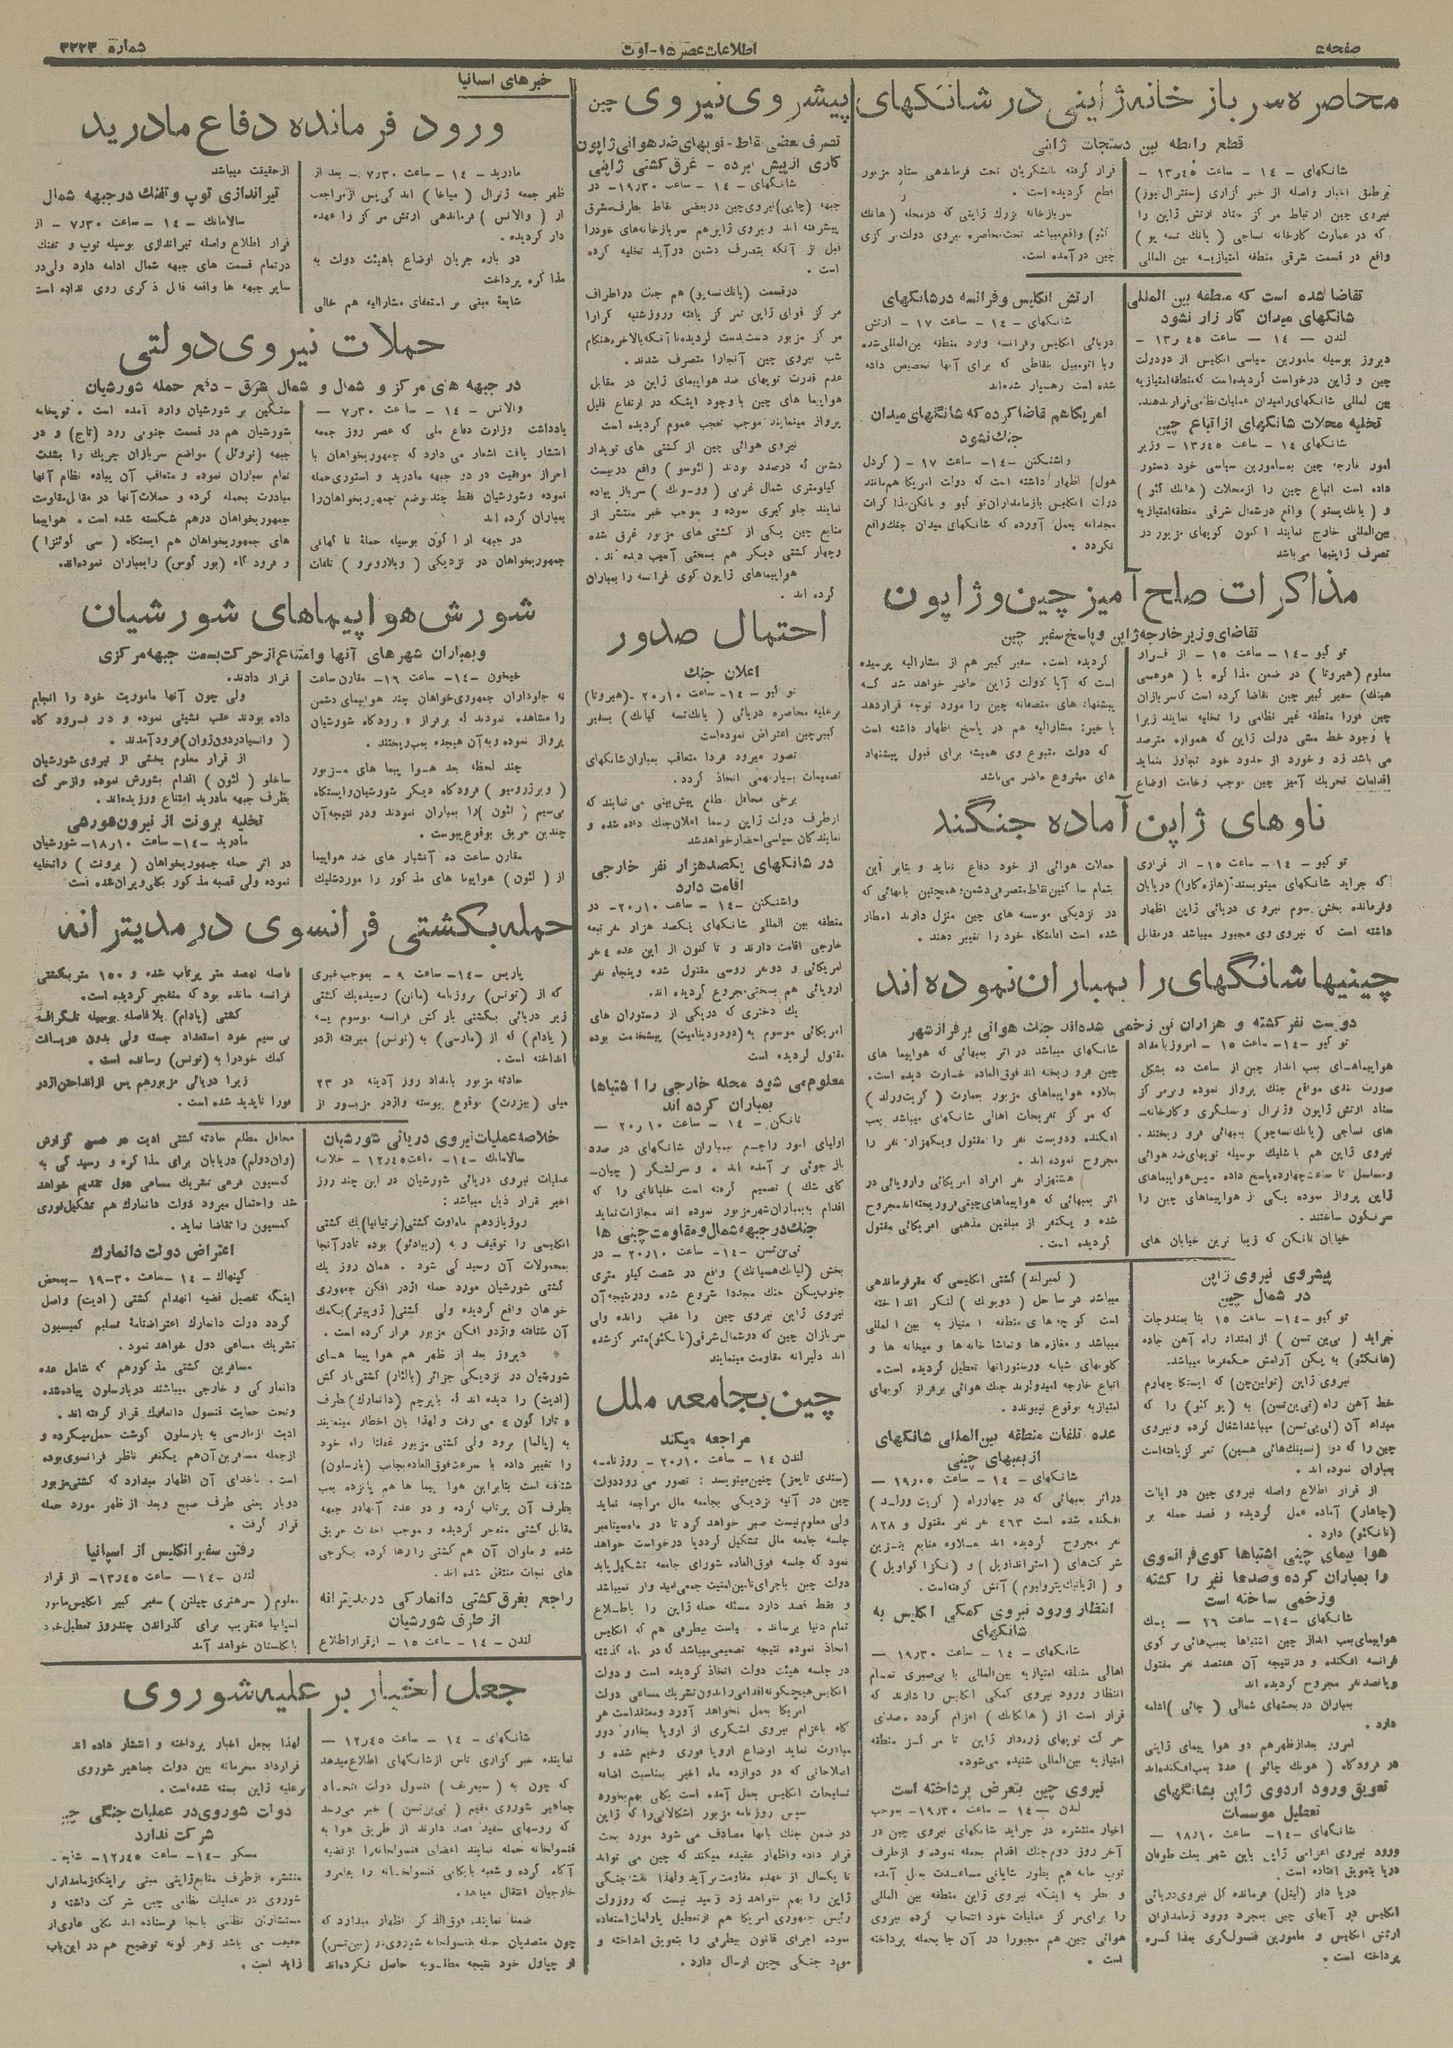 صفحه۵
اطلاعات عصر ۱۵- اوت
شماره ۳۲۲۳
محاصره سرباز خانه ژاپنی در شانگهای
قطع رابطه بین دستجات ژاپنی
شانگهای - ۱۴ - ساعت ۱۳٫۴۵ -
برطبق اخبار واصله از خبر گزاری (سنترال نیوز)
نیروی چین ارتباط مرکز ستاد ارتش ژاپن را
که در عمارت کارخانه نساجی ( یانك تسه پو )
واقع در قسمت شرقی منطقه امتیازیه بین المللی
قرار گرفته بالشگریان تحت فرماندهی ستاد مزبور
قطع گردیده است.
سربازخانه بزرك ژاپنی که درمحله (هانك
کئو) واقع میباشد تحت محاصره نیروی دولت مرکزی
چین در آمده است.
تقاضا شده است که منطقه بین المللی
شانگهای میدان کار زار نشود
لندن - ۱۴ - ساعت ۱۳٫۴۵ -
دیروز بوسیله مامورین سیاسی انگلیس از دودولت
چین و ژاپن درخواست گردیده است که منطقه امتیازیه
بین المللی شانگهای را میدان عملیات نظامی قرار ندهند.
تخلیه محلات شانگهای از اتباع چین
شانگهای ۱۴ - ساعت ۱۳٫۴۵ - وزیر
امور خارجه چین بمامورین سیاسی خود دستور
داده است اتباع چین را ازمحلات ( هانك کئو )
و ( یانك پستو ) واقع درشمال شرقی منطقه امتیازیه
بین المللی خارج نمایند اکنون کویهای مزبور در
تصرف ژاپنیها می باشد
ارتش انگلیس و فرانسه در شانگهای
شانگهای - ۱۴ - ساعت ۱۷ - ارتش
دریائی انگلیس و فرانسه وارد منطقه بین المللی شده
و با اتومبیل بنقاطی که برای آنها تخصیص داده
شده است رهسپار شده اند
امریکا هم تقاضا کرده که شانگهای میدان
جنك نشود
واشنگتن -۱۴- ساعت ۱۷ - ( کردل
هول) اظهار داشته است که دولت امریکا هم مانند
دولت انگلیس بازمامداران توکیو و نانکن مذاکرات
مجدانه بعمل آورده که شانگهای میدان جنك واقع
نگردد .
مذاکرات صلح آمیز چین و ژاپون
تقاضای وزیر خارجه ژاپن و پاسخ سفیر چین
تو کیو -۱۴- ساعت ۱۵ - از قرار
معلوم (هیروتا) در ضمن مذاکره با ( هوهسی
هینك ) سفیر کبیر چین تقاضا کرده است که سربازان
چین فورا منطقه غیر نظامی را تخلیه نمایند زیرا
با وجود خط مشی دولت ژاپن که همواره مترصد
می باشد زد و خورد از حدود خود تجاوز ننماید
اقدامات تحریك آمیز چین موجب وخامت اوضاع
گردیده است. سفیر کبیر هم از مشارالیه پرسیده
است که آیا دولت ژاپن حاضر خواهد شد که
پیشنهاد های منصفانه چین را مورد توجه قراردهد
یا خیر: مشارالیه هم در پاسخ اظهار داشته است
که دولت متبوع وی همیشه برای قبول پیشنهاد
های مشروع حاضر می باشد
ناوهای ژاپن آماده جنگند
تو کیو -۱۴- ساعت ۱۵- از قراری
که جراید شانگهای مینویسند: (هازه کاوا) دریابان
و فرمانده بخش سوم نیروی دریائی ژاپن اظهار
داشته است که نیروی وی مجبور میباشد درمقابل
حملات هوائی از خود دفاع نماید و بنابر این
بتمام ساکنین نقاط متصرفی دشمن و همچنین باتباعی که
در نزدیکی موسسه های چین منزل دارند اخطار
شده است اقامتگاه خود را تغییر دهند .
چینیها شانگهای را بمباران نموده اند
دویست نفر کشته و هزاران تن زخمی شده اند جنك هوائی بر فراز شهر
تو کیو -۱۴- ساعت ۱۵ - امروز بامداد
هواپیماهای بمب انداز چین از ساعت ده بشکل
صورت بندی مواقع جنك پرواز نموده و برمرکز
ستاد ارتش ژاپون و ژنرال کونسلگری و کارخانه-
های نساجی (یانك تسه چو) بمبهائی فرو ریختند .
نیروی ژاپن هم با شلیك بوسیله توپهای ضد هوائی
و مسلسل تا ساعت چهارده پاسخ داده سپس هواپیماهای
ژاپن پرواز نموده یکی از هواپیماهای چین را
سرنگون ساختند .
خیابان نانکن که زیبا ترین خیابان های
شانگهای میباشد در اثر بمبهائی که هواپیما های
چین فرو ریخته اند فوق العاده خسارت دیده است.
بعلاوه هواپیماهای مزبور بعمارت ( گریت ورلد )
که مرکز تفریحات اهالی شانگهای میباشد بمب
افکنده و دویست نفر را مقتول و یکهزار نفر را
مجروح نموده اند .
هشتهزار نفر افراد امریکائی و اروپائی در
اثر بمبهائی که هواپیماهای چینی فرو ریخته اند مجروح
شده و یکنفر از مبلغین مذهبی امریکائی مقتول
گردیده است .
پیشروی نیروی ژاپن
در شمال چین
تو کیو -۱۴- ساعت ۱۵ بنا بمندرجات
جراید ( تی ین تسن ) از امتداد راه آهن جاده
(هانکئو) به پکن آرامش حکمفرما میباشد.
نیروی ژاپن (تولین چن) که ایستگاه چهارم
خط آهن راه (تی ین تسن) به (پو کئو) را که
مبداء آن (تی یی تسن) میباشد اشغال کرده و نیروی
چین را که در (تسینك هائی هسین) تمر کزیافته است
بمباران نموده اند .
از قرار اطلاع واصله نیروی چین در ایالت
(چاهار) آماده عمل گردیده و قصد حمله بر
(نانکئو) دارد .
هوا پیمای چینی اشتباها کوی فرانسوی
را بمباران کرده و صدها نفر را کشته
و زخمی ساخته است
شانگهای -۱۴- ساعت ۱۶ - یك
هواپیمای بمب انداز چین اشتباها بمب هائی بر کوی
فرانسه افکنده و درنتیجه آن هفتصد نفر مقتول
و پانصد نفر مجروح گردیده اند
بمباران در بخشهای شمالی ( چاپی ) ادامه
دارد .
امروز بعد از ظهر هم دو هوا پیمای ژاپنی
در فرودگاه ( هونك چائو ) عده بمب افکنده اند
تعویق ورود اردوی ژاپن بشانگهای
تعطیل موسسات
شانگهای -۱۴- ساعت ۱۸٫۱۰ -
ورود نیروی اعزامی ژاپن باین شهر بعلت طوفان
دریا بتعویق افتاده است.
دریا دار (لیتل) فرمانده کل نیروی دریائی
انگلیس در آبهای چین بمجرد ورود زمامداران
ارتش انگلیس و مامورین قنسولگری بمذاکره
پرداخته است .
( کمبرلند ) کشتی انگلیسی که مقر فرماندهی
میباشد در ساحل ( دوبوك ) لنگر انداخته
است کوچه های منطقه امتیازیه بین المللی
میباشد و مغازه ها و تماشا خانه ها و میخانه ها و
کلوپهای شبانه و رستورانها تعطیل گردیده است.
اتباع خارجه امیدوارند جنك هوائی برفراز کویهای
امتیازیه بوقوع نپیوندد .
عده تلفات منطقه بین المللی شانگهای
از بمبهای چینی
شانگهای - ۱۴ - ساعت ۱۹٫۰۵ -
در اثر بمبهائی که در چهارراه ( گریت ورلد )
افکنده شده است ۴۶۳ نفر مقتول و ۸۲۸
نفر مجروح گردیده اند بعلاوه منابع بنزین
شرکت های ( استراندارد اویل ) و ( تگزاکواویل )
و ( آزیاتیك پترولیوم ) آتش گرفته است.
انتظار ورود نیروی کمکی انگلیس به
شانگهای
شانگهای - ۱۴ - ساعت ۱۹٫۳۰ -
اهالی منطقه امتیازیه بین المللی با بی صبری تمام
انتظار ورود نیروی کمکی انگلیس را دارند که
قرار است از ( هانکانك ) اعزام گردد . صدای
حرکت توپهای زره دار ژاپن تا مرکز منطقه
امتیازیه بین المللی شنیده می شود.
نیروی چین بتعرض پرداخته است
لندن - ۱۴ - ساعت ۱۹٫۳۰- بموجب
اخبار منتشره در جراید شانگهای نیروی چین در
آخر روز دوم جنك اقدام بحمله نموده و ازطرف
توپ خانه هم بطور شایانی مساعدت بعمل آمده
و نظر به اینکه نیروی ژاپن منطقه بین المللی
را برای مرکز عملیات خود انتخاب کرده نیروی
هوائی چین هم مجبورا در آن جا بحمله پرداخته
است .
پیشروی نیروی چین
تصرف بعضی نقاط - توپهای ضد هوائی ژاپون
کاری از پیش نبرده - غرق کشتی ژاپنی
شانگهای - ۱۴ - ساعت ۱۹٫۳۰- در
جبهه (چاپی) نیروی چین در بعضی نقاط بطرف مشرق
پیشرفته اند و نیروی ژاپن هم سربازخانه های خود را
قبل از آنکه بتصرف دشمن در آید تخلیه کرده
است .
در قسمت (یانك تسه پو) هم جنك در اطراف
مرکز قوای ژاپن تمرکز یافته و روز شنبه کرارا
مرکز مزبور دست بدست گردیده تا آنکه بالاخره هنگام
شب نیروی چین آنجا را متصرف شدند .
عدم قدرت توپهای ضد هواپیمای ژاپن در مقابل
هواپیما های چین با وجود اینکه در ارتفاع قلیل
پرواز مینمایند موجب تعجب عموم گردیده است
نیروی هوائی چین از کشتی های توپدار
دشمن که درصدد بودند ( لئوسو ) واقع در بیست
کیلومتری شمال غربی ( ووسونك ) سرباز پیاده
نمایند جلوگیری نموده و بموجب خبر منتشر از
منابع چین یکی از کشتی های مزبور غرق شده
و چهار کشتی دیگر هم بسختی آسیب دیده اند .
هواپیماهای ژاپون کوی فرانسه را بمباران
کرده اند .
احتمال صدور
اعلان جنك
تو کیو -۱۴- ساعت ۲۰٫۱۰ - (هیروتا)
برعلیه محاصره دریائی ( یانك تسه کیانك ) بسفیر
کبیر چین اعتراض نموده است
تصور میرود فردا متعاقب بمباران شانگهای
تصمیمات بسیار مهمی اتخاذ گردد .
برخی محافل مطلع پیش بینی می نمایند که
ازطرف دولت ژاپن رسما اعلان جنك داده شده و
نمایندگان سیاسی احضار خواهد شد
در شانگهای یکصد هزار نفر خارجی
اقامت دارد
واشنگتن -۱۴ - ساعت ۲۰٫۱۰- در
منطقه بین المللی شانگهای یکصد هزار نفر تبعه
خارجی اقامت دارند و تا کنون از این عده ۴ نفر
امریکائی و دو نفر روسی مقتول شده و پنجاه نفر
اروپائی هم بسختی مجروح گردیده اند .
یك دختری که در یکی از رستوران های
امریکائی موسوم به (دودو دینامیت) پیشخدمت بوده
مقتول گردیده است
معلوم می شود محله خارجی را اشتباها
بمباران کرده اند
نانکن - ۱۴ - ساعت ۲۰٫۱۰ -
اولیای امور راجع ببمباران شانگهای در صدد
باز جوئی بر آمده اند . و سرلشگر ( چیان-
کای شك ) تصمیم گرفته است خلبانانی را که
اقدام به بمباران شهر مزبور نموده اند مجازات نماید
جنك در جبهه شمال و مقاومت چینی ها
تی ین تسن -۱۴- ساعت ۲۰٫۱۰ - در
بخش (لیانك هسیانك) واقع در شصت کیلو متری
جنوب پکن جنك مجددا شروع شده و درنتیجه آن
نیروی ژاپن نیروی چین را عقب رانده ولی
سربازان چین که درشمال شرقی (نانکئو) متمرکز شده
اند دلیرانه مقاومت مینمایند
چین بجامعه ملل
مراجعه میکند
لندن ۱۴ - ساعت ۲۰٫۱۰ - روزنامه
(سندی تایمز) چنین مینویسد : تصور می رود دولت
چین در آتیه نزدیکی بجامعه ملل مراجعه نماید
ولی معلوم نیست صبر خواهد کرد تا در ماه سپتامبر
جلسه جامعه ملل تشکیل گردد یا درخواست خواهد
نمود که جلسه فوق العاده شورای جامعه تشکیل یابد
دولت چین با جرای تامین امنیت جمعی امید وار نمیباشد
و فقط قصد دارد مسئله حمله ژاپن را باطلاع
تمام دنیا برساند . سیاست بیطرفی هم که انگلیس
اتخاذ نموده نتیجه تصمیمی میباشد که در ماه گذشته
در جلسه هیئت دولت اتخاذ گردیده است و دولت
انگلیس هیچگونه اقدامی را بدون تشریك مساعی دولت
امریکا بعمل نخواهد آورد و معتقد است هر
گاه باعزام نیروی لشگری از اروپا بخاور دور
مبادرت نماید اوضاع اروپا فوری وخیم شده و
اصلاحاتی که در دوازده ماه اخیر بمناسبت اضافه
تسلیحات انگلیس بعمل آمده است بکلی بهم بخورد
سپس روزنامه مزبور اشکالاتی را که ژاپن
در ضمن جنك بآنها مصادف می شود مورد بحث
قرار داده و اظهار عقیده میکند که چین می تواند
تا یکسال از عهده مقاومت بر آید و لهذا نقشه جنگی
ژاپن را بهم خواهد زد و بعید نیست که روزولت
رئیس جمهوری امریکا هم از تعطیل پارلمان استفاده
نموده اجرای قانون بیطرفی را بتعویق انداخته و
مواد جنگی بچین ارسال دارد .
خبرهای اسپانیا
ورود فرمانده دفاع مادرید
مادرید - ۱۴ - ساعت ۷٫۳۰ - بعد از
ظهر جمعه ژنرال ( میاخا ) اند کی پس از مراجعت
از ( والانس ) فرماندهی ارتش مرکز را عهده
دار گردیده .
در باره جریان اوضاع باهیئت دولت به
مذاکره پرداخت
شایعه مبنی بر استعفای مشارالیه هم خالی
ازحقیقت میباشد
تیراندازی توپ و تفنك در جبهه شمال
سالامانك - ۱۴ - ساعت ۷٫۳۰ - از
قرار اطلاع واصله تیراندازی بوسیله توپ و تفنك
در تمام قسمت های جبهه شمال ادامه دارد ولی در
سایر جبهه ها واقعه قابل ذکری روی نداده است
حملات نیروی دولتی
در جبهه های مرکز و شمال و شمال شرق - دفع حمله شورشیان
والانس - ۱۴ - ساعت ۷٫۳۰ -
یادداشت وزارت دفاع ملی که عصر روز جمعه
انتشار یافت اشعار می دارد که جمهوریخواهان با
احراز موفقیت در دو جبهه مادرید و استوری حمله
نموده و شورشیان فقط چند موضع جمهوریخواهان را
بمباران کرده اند
در جبهه اراگون بوسیله حمله ناگهانی
جمهوریخواهان در نزدیکی ( ویلاروبرو ) تلفات
سنگین بر شورشیان وارد آمده است . توپخانه
شورشیان هم در قسمت جنوبی رود (تاج) و در
جبهه (تروئل) مواضع سربازان چریك را بشدت
تمام بمباران نموده و متعاقب آن پیاده نظام آنها
مبادرت بحمله کرده و حملات آنها در مقابل مقاومت
جمهوریخواهان درهم شکسته شده است . هواپیما
های جمهوریخواهان هم ایستگاه ( سی گوئنزا )
و فرودگاه (بورگوس) را بمباران نموده اند.
شورش هواپیماهای شورشیان
و بمباران شهرهای آنها و امتناع از حرکت بسمت جبهه مرکزی
خیخون -۱۴- ساعت ۱۶- مقارن ساعت
نه جلوداران جمهوری خواهان چند هواپیمای دشمن
را مشاهده نمودند که بر فراز فرودگاه شورشیان
پرواز نموده و به آن هیجده بمب ریختند .
چند لحظه بعد هوا پیما های مزبور
( ویرژرومیو ) فرودگاه دیگر شورشیان و ایستگاه
بی سیم ( لئون ) را بمباران نمودند و در نتیجه آن
چندین حریق بوقوع پیوست .
مقارن ساعت ده آتشبار های ضد هواپیما
از ( لئون ) هواپیما های مذکور را مورد شلیك
قرار دادند.
ولی چون آنها ماموریت خود را انجام
داده بودند عقب نشینی نموده و در فرودگاه
( وانسیاد دون ژوان) فرود آمدند .
از قرار معلوم بخشی از نیروی شورشیان
ساخلو ( لئون ) اقدام بشورش نموده و از حرکت
بطرف جبهه مادرید امتناع ورزیده اند .
تخلیه برونت از نیرون هورهی
مادرید -۱۴- ساعت ۱۸٫۱۰- شورشیان
در اثر حمله جمهوریخواهان ( برونت ) را تخلیه
نموده ولی قصبه مذکور بکلی ویران شده است
حمله بکشتی فرانسوی در مدیترانه
پاریس -۱۴- ساعت ۹ - بموجب خبری
که از (تونس) بروزنامه (ماتن) رسیده یك کشتی
زیر دریائی بکشتی بارکش فرانسه موسوم به
( پادام ) که از (مارسی) به (تونس) میرفته اژدر
انداخته است .
حادثه مزبور بامداد روز آدینه در ۲۳
میلی (بیزرت) بوقوع پیوسته و اژدر مزبور از
فاصله نهصد متر پرتاب شده و ۱۵۰ متر بکشتی
فرانسه مانده بود که منفجر گردیده است.
کشتی (پادام) بلا فاصله بوسیله تلگراف
بی سیم خود استمداد جسته ولی بدون دریافت
کمك خود را به (تونس) رسانده است .
زیرا دریائی مزبور هم پس از انداختن اژدر
فورا ناپدید شده است .
خلاصه عملیات نیروی دریائی شورشیان
سالامانك -۱۴- ساعت ۱۲٫۴۵ - خلاصه
عملیات نیروی دریائی شورشیان در این چند روز
اخیر قرار ذیل میباشد :
روز یازدهم ماه اوت کشتی (نرتیانیا) یك کشتی
انگلیسی را توقیف و به (ریبادئو) بوده تا در آنجا
بمحمولات آن رسیدگی شود . همان روز یك
کشتی شورشیان مورد حمله اژدر افکن جمهوری
خواهان واقع گردیده ولی کشتی (ژوپیتر) بکمك
آن شتافته و اژدر افکن مزبور فرار کرده است .
دیروز بعد از ظهر هم هوا پیما های
شورشیان در نزدیکی جزائر (بالئار) کشتی بارکش
(ادیت) را دیده اند که با پرچم (دانمارك) بطرف
تاراگون می رفت و لهذا بان اخطار مینمایند
به (پالما) برود ولی کشتی مزبور غفلتا راه خود
را تغییر داده با سرعت فوق العاده بجانب (بارسلون)
شتافته است بنابراین هوا پیما ها هم پانزده بمب
بطرف آن پرتاب کرده و دو عدد آنها در جبهه
مقابل کشتی منفجر گردیده و موجب احداث حریق
شده و ملوانان آن هم کشتی را رها کرده بکرجی
های نجات منتقل شده اند .
راجع بغرق کشتی دانمارکی در مدیترانه
از طرف شورشیان
لندن - ۱۴ - ساعت ۱۵ - از قرار اطلاع
محافل مطلع حادثه کشتی ادیت در ضمن گزارش
(وان دولم) دریابان برای مذاکره و رسیدگی به
کمسیون فرعی تشریك مساعی دول تقدیم خواهد
شد و احتمال میرود دولت دانمارك هم تشکیل فوری
کمسیون را تقاضا نماید .
اعتراض دولت دانمارك
کپنهاك - ۱۴ - ساعت ۱۹٫۳۰ - بمحض
اینکه تفصیل قضیه انهدام کشتی (ادیت) واصل
گردد دولت دانمارك اعتراضنامه تسلیم کمیسیون
تشریك مساعی دول خواهد نمود .
مسافرین کشتی مذکور هم که شامل عده
دانمارکی و خارجی میباشند در بارسلون پیاده شده
و تحت حمایت قنسول دانمارك قرار گرفته اند .
ادیت از مارسی به بارسلون گوشت حمل میکرده و
از جمله مسافرین آن هم یکنفر ناظر فرانسوی بوده
است . ناخدای آن اظهار میدارد که کشتی مزبور
دوبار یعنی طرف صبح و بعد از ظهر مورد حمله
قرار گرفت .
رفتن سفیر انگلیس از اسپانیا
لندن -۱۴- ساعت ۱۳٫۴۵ - از قرار
معلوم ( سرهنری چیلتن ) سفیر کبیر انگلیس مامور
اسپانیا عنقریب برای گذراندن چند روز تعطیل خود
بانگلستان خواهد آمد
جعل اخبار بر علیه شوروی
شانگهای - ۱۴ - ساعت ۱۲٫۴۵ -
نماینده خبرگزاری تاس از شانگهای اطلاع میدهد
که چون به (سمیرنف) قنسول دولت اتحاد
جماهیر شوروی مقیم (تی ین تسن) خبر می رسد
که روسهای سفید قصد دارند از طریق هوا به
قنسولخانه حمله نمایند اعضای قنسولخانه را از قضیه
آگاه کرده و شعبه بایگانی قنسولخانه را بقلمرو
خارجیان انتقال میدهد.
ضمنا نماینده فوق الذکر اظهار میدارد که
چون متصدیان حمله بقنسولخانه شوروی در (تی ین تسن)
از چپاول خود نتیجه مطلوبه حاصل نکرده اند
لهذا بجعل اخبار پرداخته و انتشار داده اند
قرارداد محرمانه بین دولت جماهیر شوروی
برعلیه ژاپن بسته شده است .
دولت شوروی در عملیات جنگی چین
شرکت ندارد
مسکو -۱۴- ساعت ۱۲٫۴۵- شایعه
منتشره ازطرف منابع ژاپنی مبنی براینکه زمامداران
شوروی در عملیات نظامی چین شرکت داشته و
مستشاران نظامی بآنجا فرستاده اند بکلی عاری از
حقیقت می باشد و هر گونه توضیح هم در این باب
زاید است .